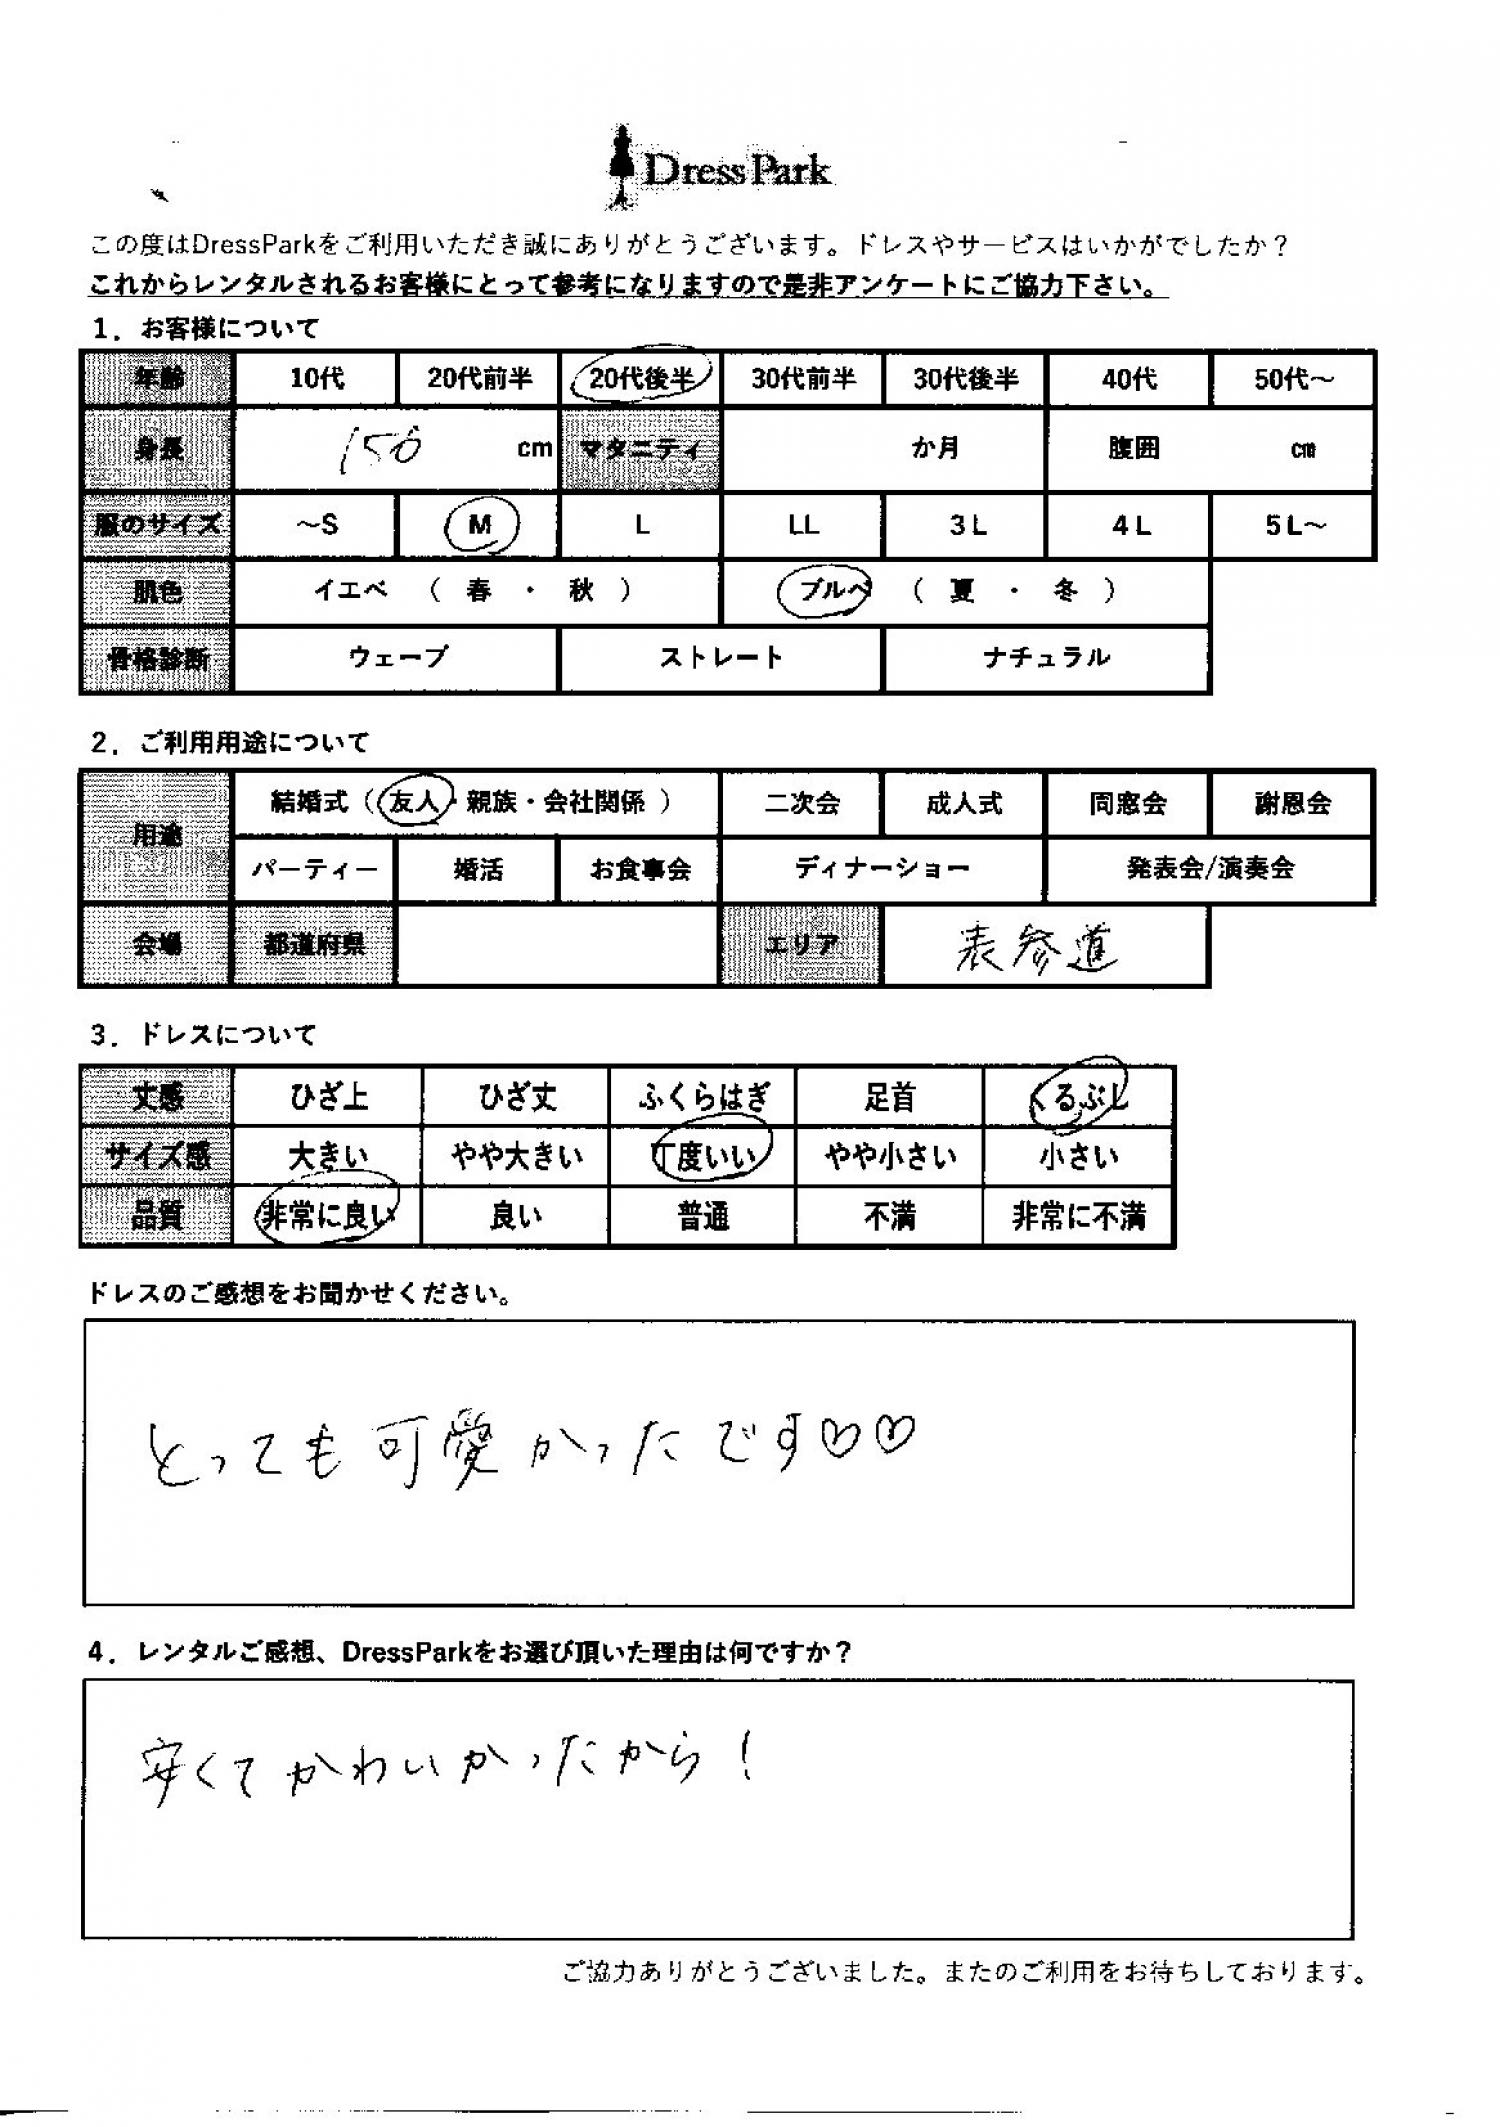 DressPark
この度はDressParkをご利用いただき誠にありがとうございます。ドレスやサービスはいかがでしたか？
これからレンタルされるお客様にとって参考になりますので是非アンケートにご協力下さい。
1．お客様について
年齢 10代 20代前半 20代後半 30代前半 30代後半 40代 50代～
身長 150 cm マタニティ か月 腹囲 cm
服のサイズ ～S M L LL 3L 4L 5L～
肌色 イエベ （ 春 ・ 秋 ） ブルベ （ 夏 ・ 冬 ）
骨格診断 ウェーブ ストレート ナチュラル
2．ご利用用途について
用途 結婚式（ 友人・親族・会社関係 ） 二次会 成人式 同窓会 謝恩会
パーティー 婚活 お食事会 ディナーショー 発表会/演奏会
会場 都道府県 エリア 表参道
3．ドレスについて
丈感 ひざ上 ひざ丈 ふくらはぎ 足首 くるぶし
サイズ感 大きい やや大きい 丁度いい やや小さい 小さい
品質 非常に良い 良い 普通 不満 非常に不満
ドレスのご感想をお聞かせください。
とっても可愛かったです♡♡
4．レンタルご感想、DressParkをお選び頂いた理由は何ですか？
安くてかわいかったから！
ご協力ありがとうございました。またのご利用をお待ちしております。